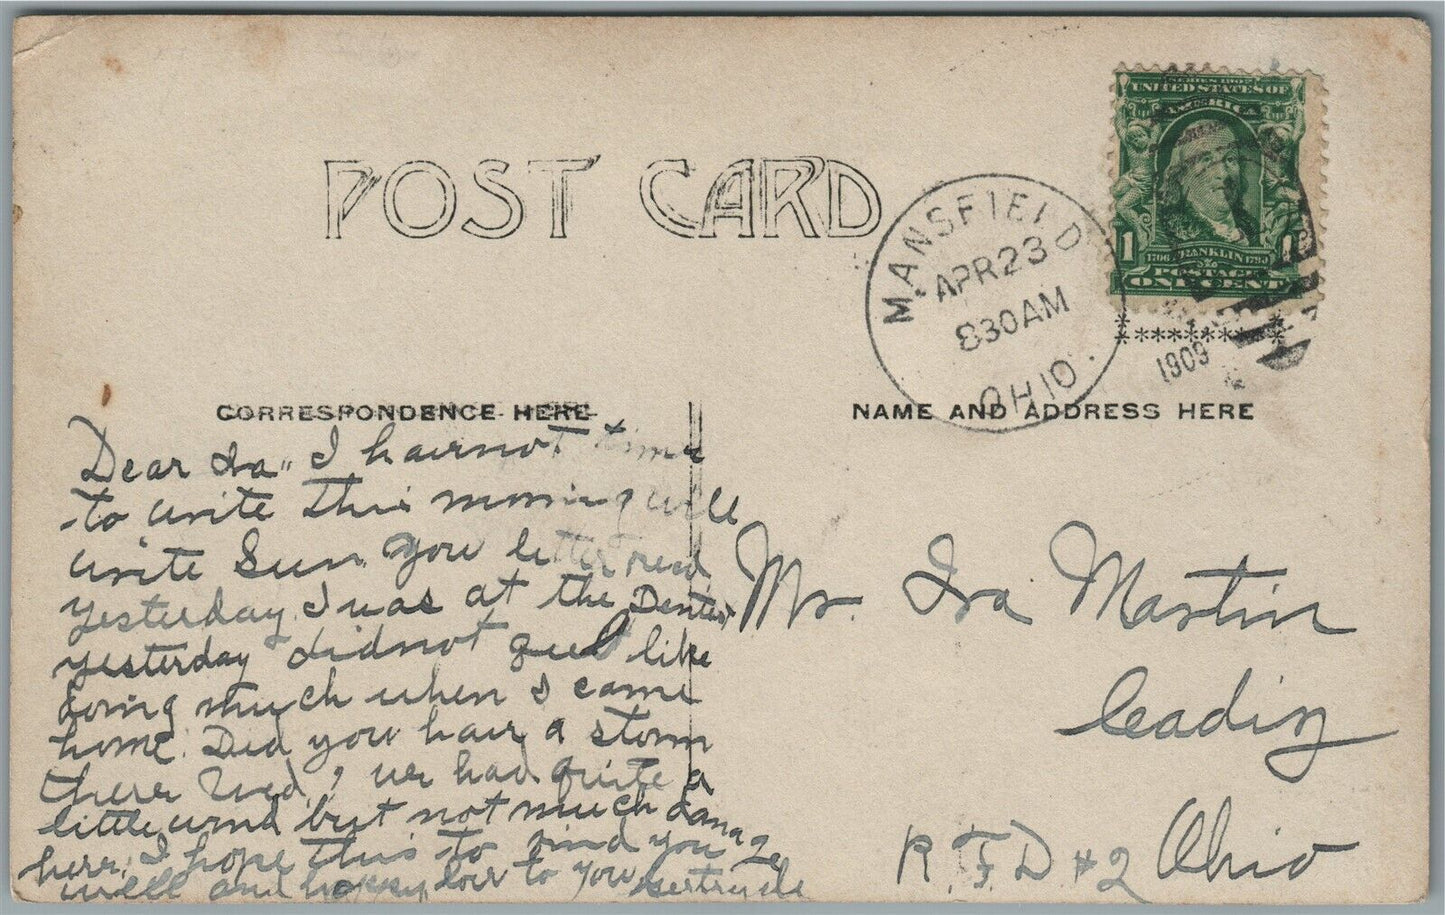 POST CARD
SERIES 1902
UNITED STATES OF
AMERICA
1 1
1706 FRANKLIN 1790
POSTAGE
ONE CENT
MANSFIELD
APR 23
830 AM
OHIO
1909
CORRESPONDENCE HERE
NAME AND ADDRESS HERE
Dear Ira" I have not time
to write this morning will
write Sun. You letter recd
yesterday. I was at the Dentist
yesterday did not feel like
doing much when I came
home. Did you have a storm
there Wed.? we had quite a
little wind but not much damage
here. I hope this to find you
well and happy, love to you, Gertrude
Mr. Ira Martin
Leading
R.F.D #2 Ohio